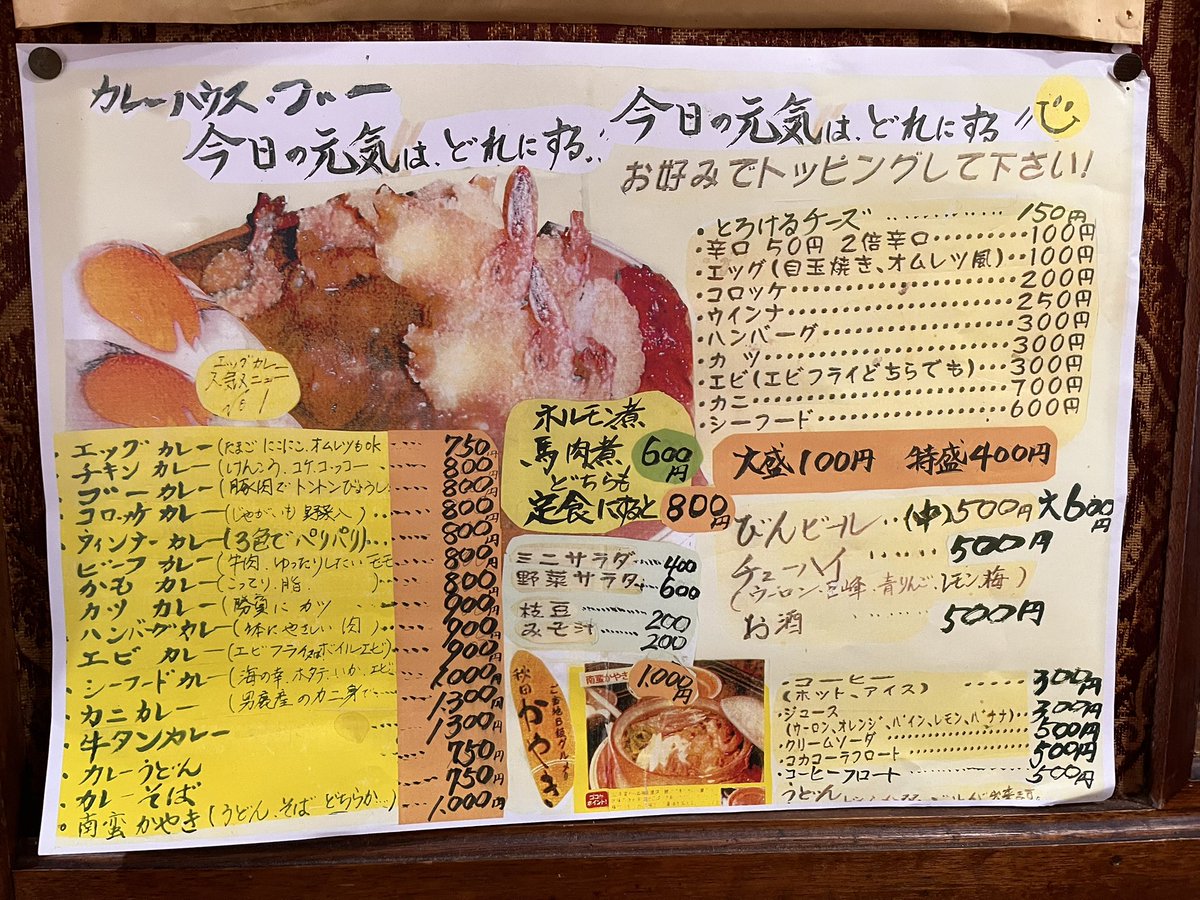 カレーハウス・ゴー
今日の元気は、どれにする〃
今日の元気は、どれにする〃
お好みでトッピングして下さい!
・とろけるチーズ……………150円
・辛口 50円 2倍辛口………100円
・エッグ(目玉焼き、オムレツ風)・・100円
・コロッケ………………200円
・ウインナ………………250円
・ハンバーグ………………300円
・カツ………………300円
・エビ(エビフライどちらでも)・・・300円
・カニ………………700円
・シーフード………………600円
大盛100円 特盛400円
エッグカレー
人気メニュー
No 1
エッグカレー(たまごにこにこ、オムレツもok……750円
チキンカレー(けんこう、コケコッコー……800円
ゴーカレー(豚肉でトントンびょうし……800円
コロッケカレー(じゃがいも野菜入)……800円
ウィンナーカレー(3色でパリパリ)……800円
ビーフカレー(牛肉、ゆったりしたいモモ……800円
かもカレー(こってり、脂、)……800円
カツカレー(勝負にカツ……900円
ハンバーグカレー(体にやさしい肉)……900円
エビカレー(エビフライorボイルエビ)……900円
シーフードカレー(海の幸、ホタテ、いか、エビ……1,000円
カニカレー(男鹿産のカニ身で……1,300円
牛タンカレー 1,300円
カレーうどん 750円
カレーそば 750円
南蛮かやき(うどん、そばどちらか…) 1,000円
ホルモン煮
馬肉煮 600円
どちらも
定食にすると 800円
ミニサラダ……400
野菜サラダ……600
枝豆…………200
みそ汁………200
秋田かやき
ご当地B級グルメ
南蛮かやき
1,000円
ココがポイント!
びんビール・・(中)500円 大600円
チューハイ……500円
(ウーロン、巨峰、青りんご、レモン、梅)
お酒……500円
・コーヒー……300円
(ホット、アイス)
・ジュース…………300円
(ウーロン、オレンジ、パイン、レモン、バナナ)・・
・クリームソーダ…………500円
・コカコーラフロート…………500円
・コーヒーフロート…………500円
うどん